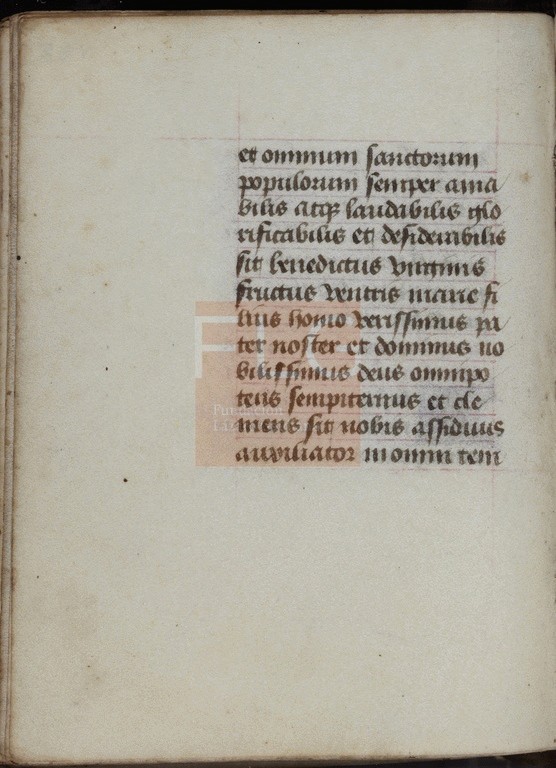 et omnium sanctorum
populorum semper ama
bilis atq̃ laudabilis glo
rificabilis et desiderabilis
sit benedictus virginis
fructus ventris marie fi
lius homo verissimus pa
ter noster et dominus no
bilissimus deus omnipo
tens sempiternus et cle
mens sit nobis assiduus
auxiliator in omni tem
FLG
Fundación